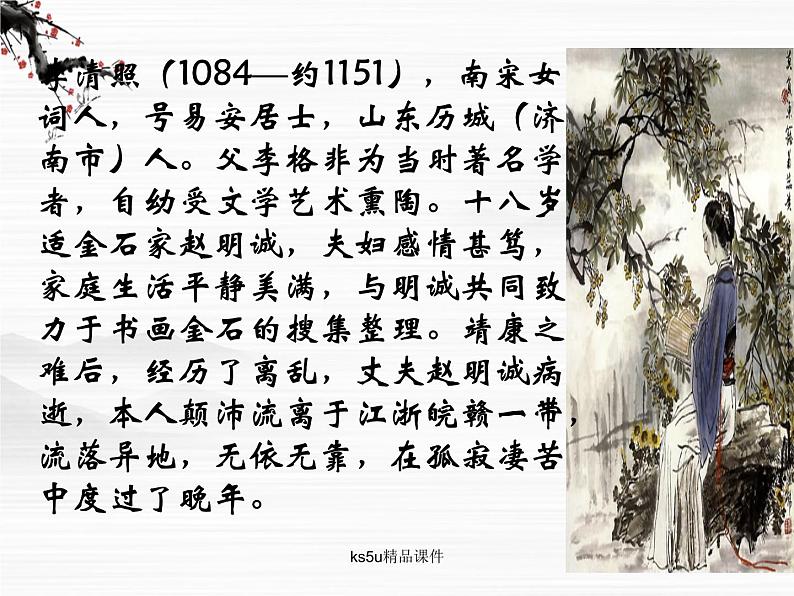 李清照（1084—约1151），南宋女
词人，号易安居士，山东历城（济
南市）人。父李格非为当时著名学
者，自幼受文学艺术熏陶。十八岁
适金石家赵明诚，夫妇感情甚笃，
家庭生活平静美满，与明诚共同致
力于书画金石的搜集整理。靖康之
难后，经历了离乱，丈夫赵明诚病
逝，本人颠沛流离于江浙皖赣一带，
流落异地，无依无靠，在孤寂凄苦
中度过了晚年。
ks5u精品课件